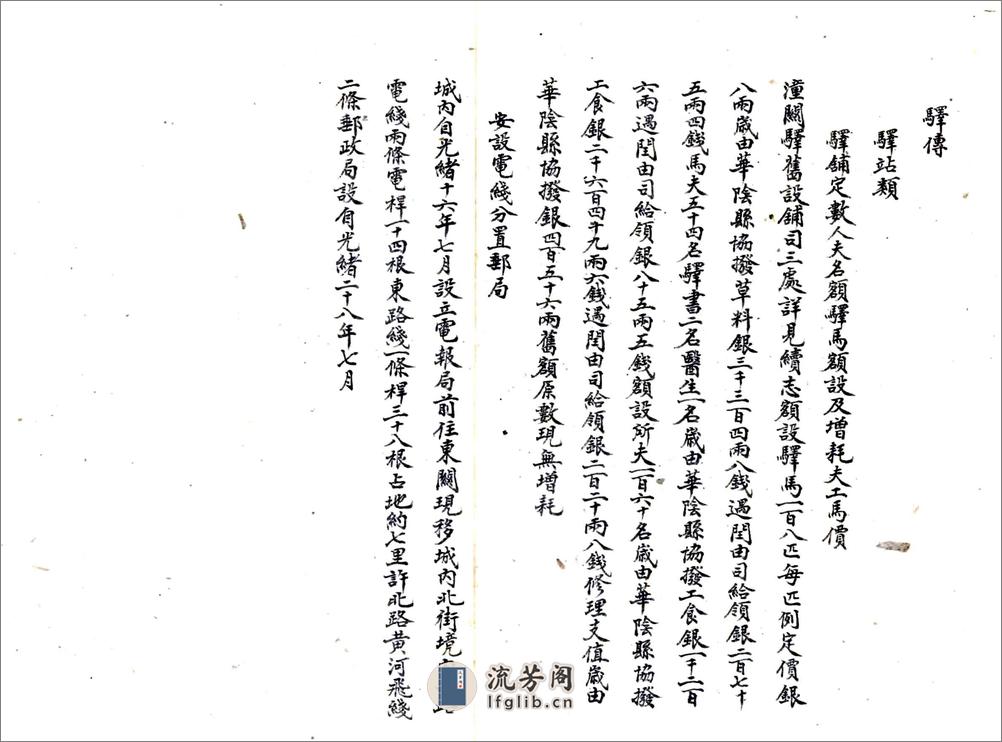 驛傳
驛站類
驛鋪定數人夫名額驛馬額設及增耗夫工馬價
潼關驛舊設鋪司三處詳見續志額設驛馬一百八匹每匹例定價銀
八兩歲由華陰縣協撥草料銀三千三百四兩八錢遇閏由司給領銀二百七十
五兩四錢馬夫五十四名驛書二名醫生一名歲由華陰縣協撥工食銀一千二百
六兩遇閏由司給領銀八十五兩五錢額設所夫一百六十名歲由華陰縣協撥
工食銀二千六百四十九兩六錢遇閏由司給領銀二百二十兩八錢修理支值歲由
華陰縣協撥銀四百五十六兩舊額原數現無增耗
安設電綫分置郵局
城內自光緒十六年七月設立電報局前住東關現移城內北街境
電綫兩條電桿一十四根東路綫一條桿三十八根占地約七里許北路黃河飛綫
二條郵政局設自光緒二十八年七月
流芳阁
lfglib.cn